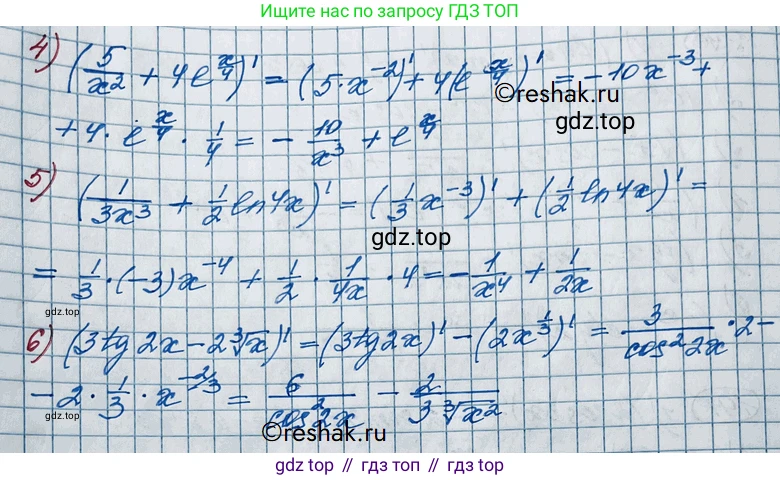 Ищите нас по запросу ГДЗ ТОП
4) (5/x² + 4e^(x/4))' = (5·x⁻²)' + 4(e^(x/4))' = -10x⁻³ +
©reshak.ru
gdz.top
+ 4·e^(x/4) · 1/4 = - 10/x³ + e^(x/4)
5) (1/(3x³) + 1/2 ln4x)' = (1/3 x⁻³)' + (1/2 ln4x)' =
gdz.top
= 1/3 · (-3)x⁻⁴ + 1/2 · 1/(4x) · 4 = - 1/x⁴ + 1/(2x)
gdz.top
6) (3tg2x - 2∛x)' = (3tg2x)' - (2x^(1/3))' = 3/(cos²2x) · 2 -
- 2 · 1/3 · x^(-2/3) = 6/(cos²2x) - 2/(3∛x²)
gdz.top
©reshak.ru
gdz.top // гдз топ // gdz.top